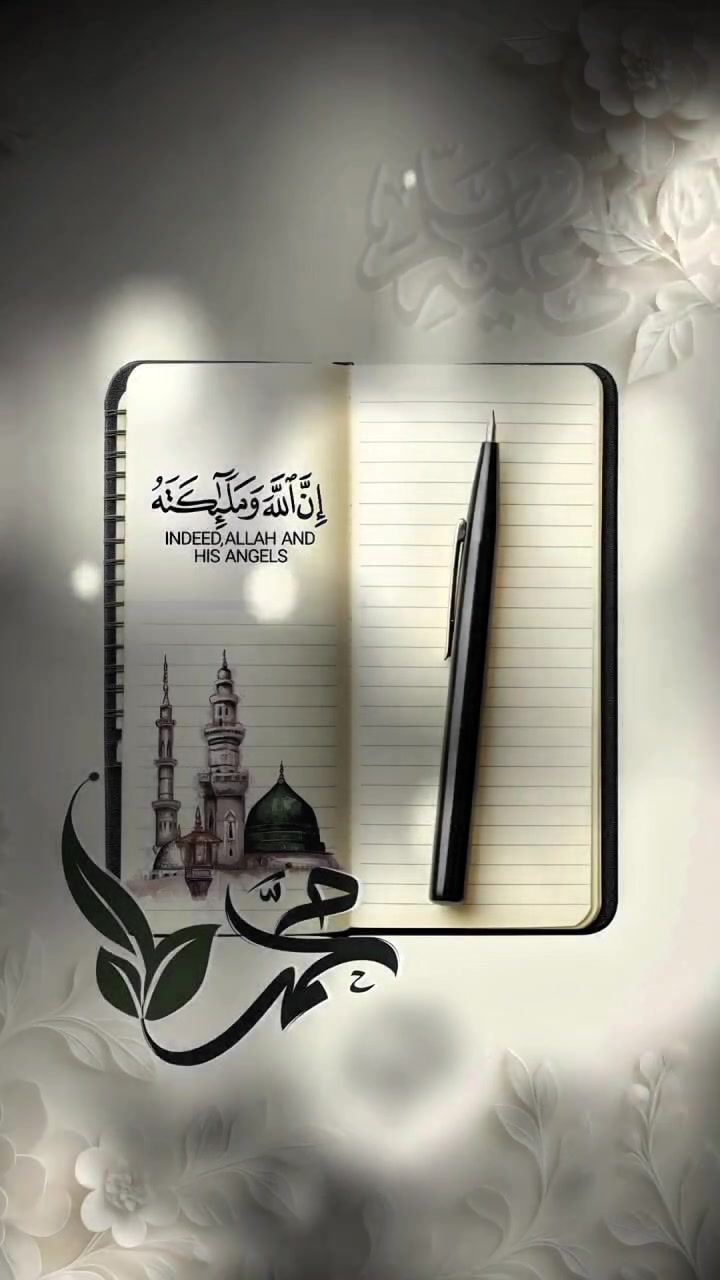 إِنَّ ٱللَّهَ وَمَلَـٰٓئِكَتَهُۥ
INDEED,ALLAH AND
HIS ANGELS
محمد